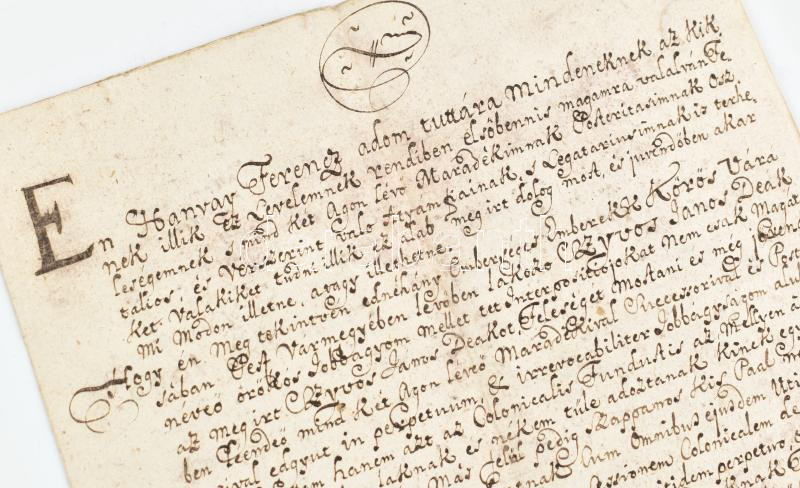 En Hanvay Ferencz adom tuttára mindeneknek az kik
nek illik ez Levelemnek rendiben elsőbennis magamra valalván Te
leségemnek s mind ket Agon lévő Maradékimnak Posteritasimnak Osz
talios, és Vérszerint való Atyamfiainak, s Legatariusimnak is terhe
ket, valakiket tudni illik ez aláb megirt dolog most, és jüvendőben akar
mi módon illetne, avagy illethetne,
Hogy én meg tekintvén ednéhány emberséges Emberekk Kőrős Vára
sában Pest Vármegyében lévőben lakozó Czyvos János Deák
nevéő örökös Jobbágyom mellet tet Interpositiojokat nem csak Magát
az megirt Czyvos János Deákot Feleségét Mostani és még jövend
ben leendeő mind ket Agon léveő Maradékival Successorival és Post
ival edgyut in perpetuum, & irrevocabiliter Jobbágyságom alul
hanem azt az Colonicalis Fundustis az Mellyen
laknak és nékem tüle adóztanak kinek egy
Más felül pedig Szappanos Kis Paal
Cum Omnibus ejusdem Uti
Sessionem Colonicalem de
perpetuo,